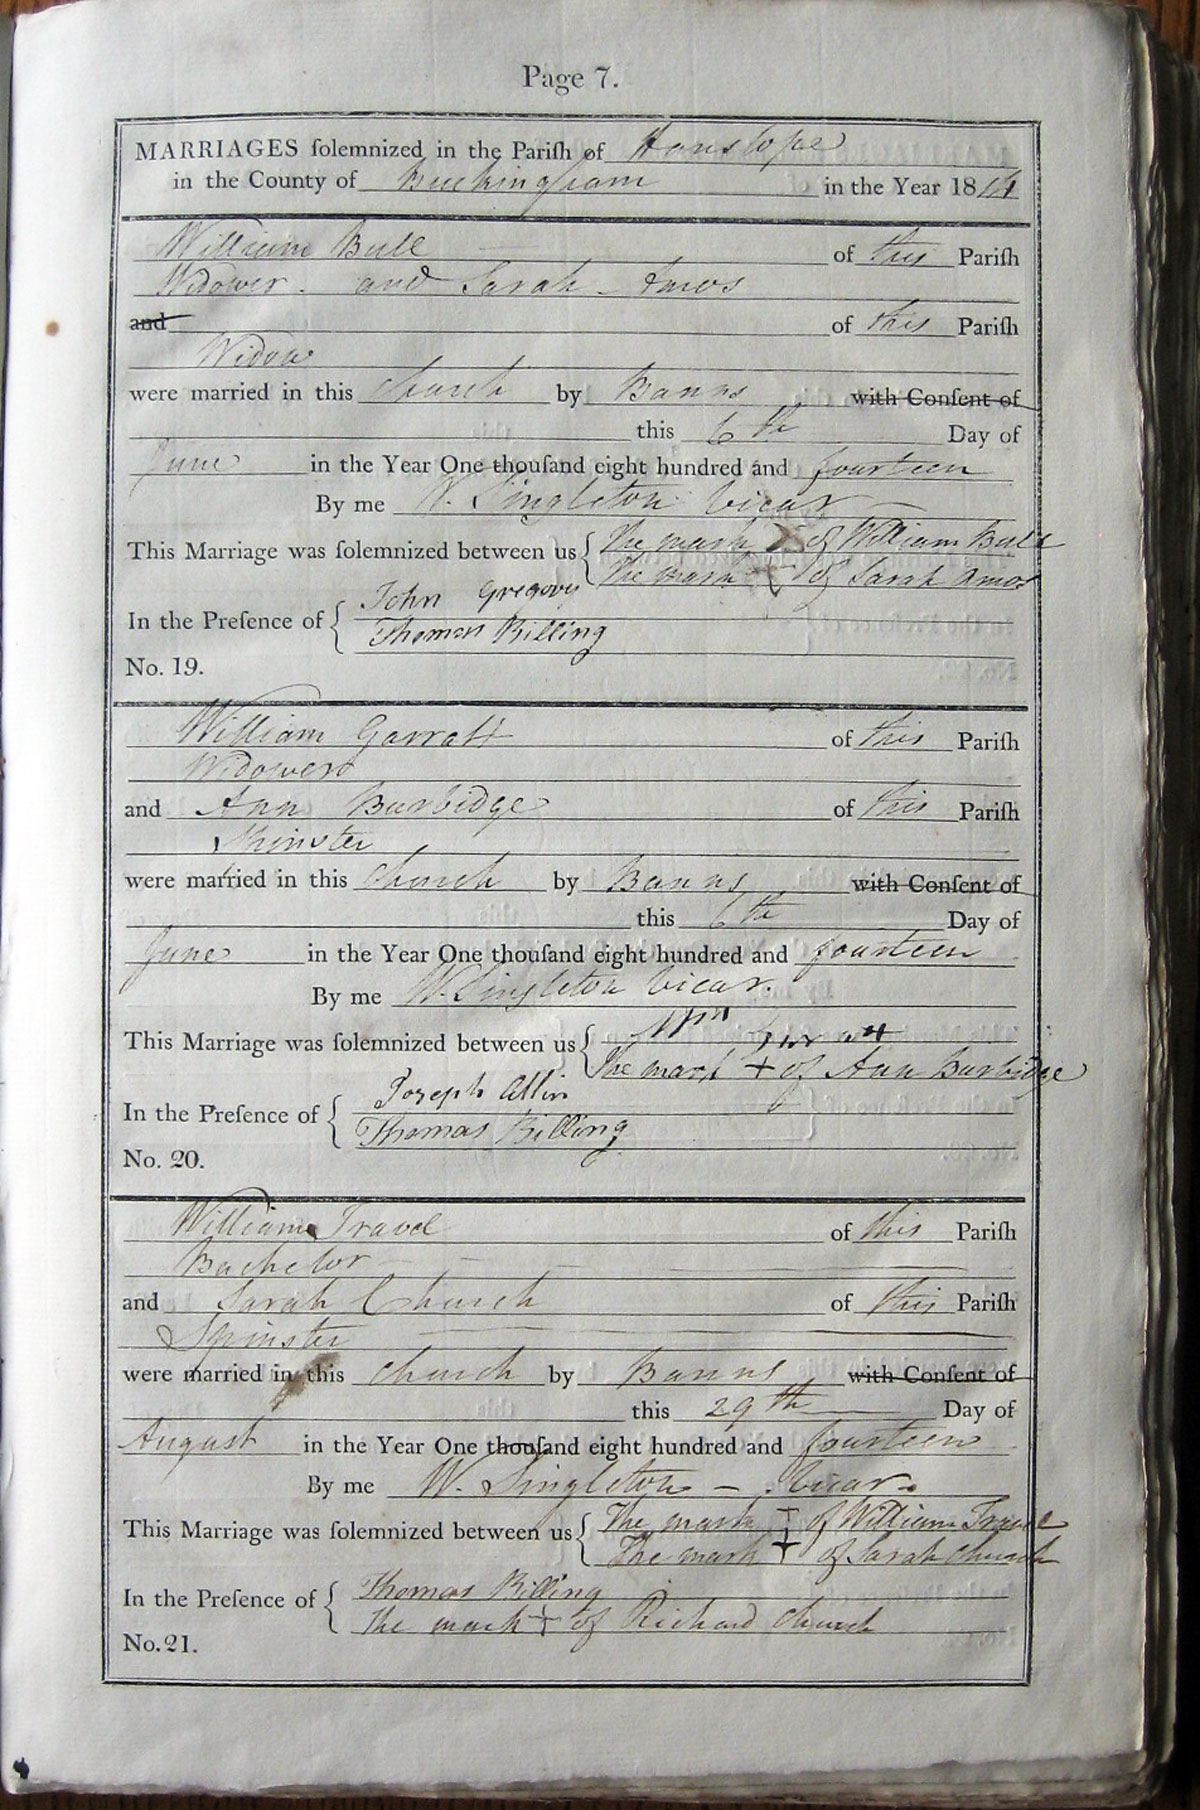 Page 7.
MARRIAGES ſolemnized in the Pariſh of Hanslope
in the County of Buckingham in the Year 1814
William Bull of this Pariſh
Widower. and Sarah Amos
and of this Pariſh
Widow
were married in this Church by Banns with Conſent of
this 6th Day of
June in the Year One thouſand eight hundred and fourteen
By me W. Singleton Vicar
This Marriage was ſolemnized between us The mark X of William Bull
The mark + of Sarah Amos
In the Preſence of John Gregory
Thomas Billing
No. 19.
William Garratt of this Pariſh
Widower
and Ann Burbidge of this Pariſh
Spinster
were married in this Church by Banns with Conſent of
this 6th Day of
June in the Year One thouſand eight hundred and fourteen
By me W. Singleton Vicar.
This Marriage was ſolemnized between us Wm
The mark + of Ann Burbidge
In the Preſence of Joseph Allin
Thomas Billing
No. 20.
William Travel of this Pariſh
Bachelor
and Sarah Church of this Pariſh
Spinster
were married in this Church by Banns with Conſent of
this 29th Day of
August in the Year One thouſand eight hundred and fourteen
By me W. Singleton - Vicar.
This Marriage was ſolemnized between us The mark + of William Travel
The mark + of Sarah Church
In the Preſence of Thomas Billing
The mark + of Richard Church
No. 21.